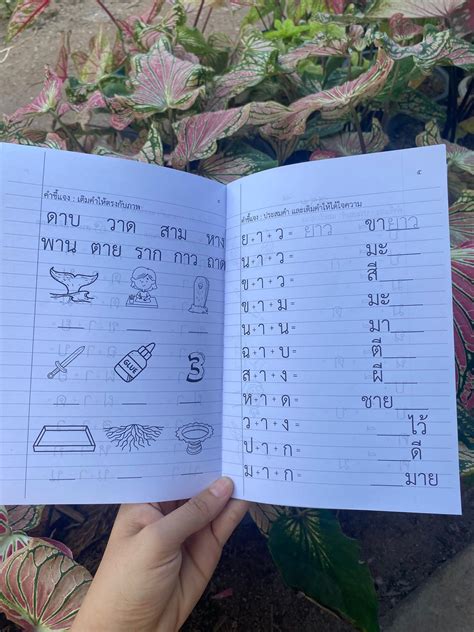 คำชี้แจง : เติมคำให้ตรงกับภาพ
ดาบ วาด สาม หาง
พาน ตาย ราก กาว ถาด
GLUE
3
๔
คำชี้แจง : ประสมคำ และเติมคำให้ได้ใจความ
ย + า + ว = ยาว ขายาว
น + า + ว = มะ
ข + า + ว = สี
ข + า + ม = มะ
น + า + น = มา
ฉ + า + บ = ตี
ส + า + ง = ผี
ห + า + ด = ชาย
ว + า + ง = ไว้
ป + า + ก = ดี
ม + า + ก = มาย